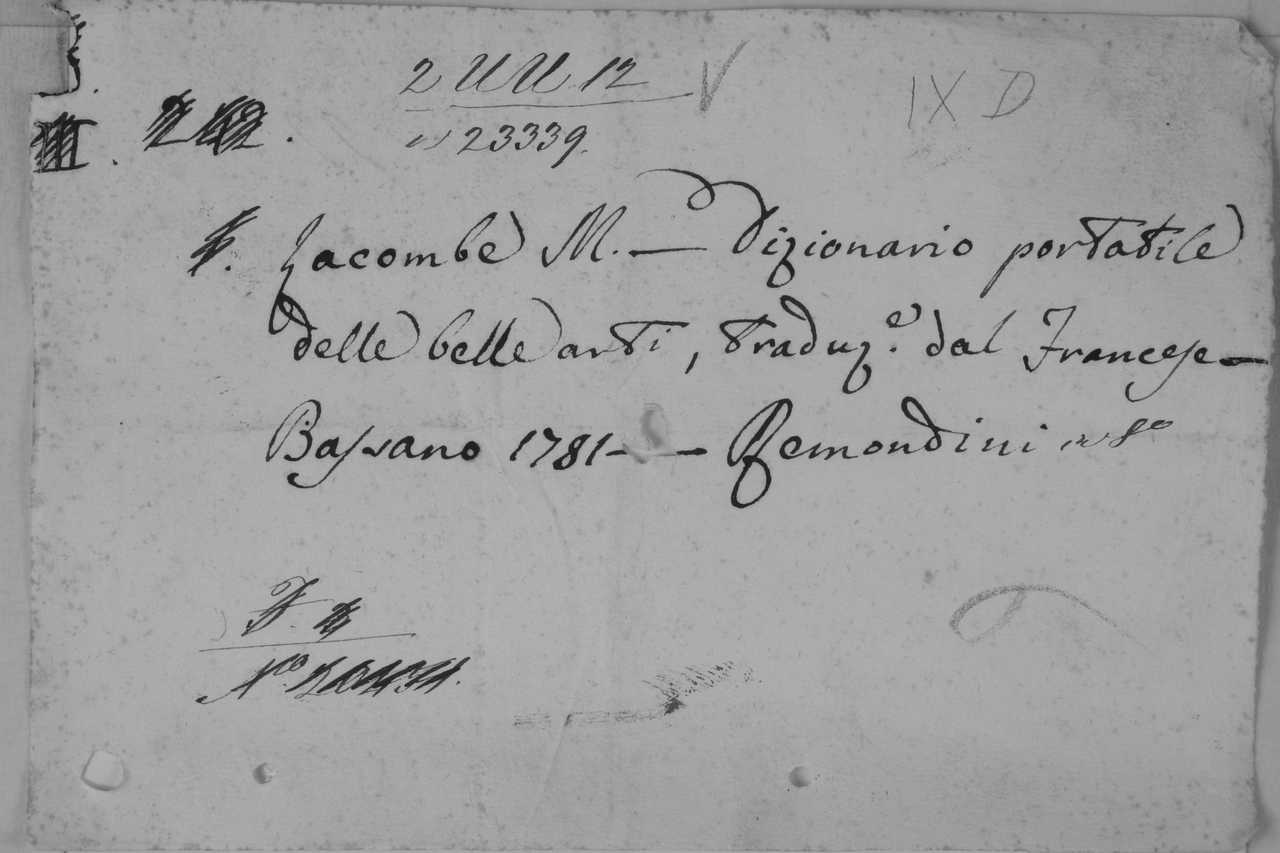 2 UU 12 V
IX D
23339.
Lacombe M. — Dizionario portatile
delle belle arti, traduz.e dal Francese —
Bassano 1781 - — Remondini in 8o
F.
No.